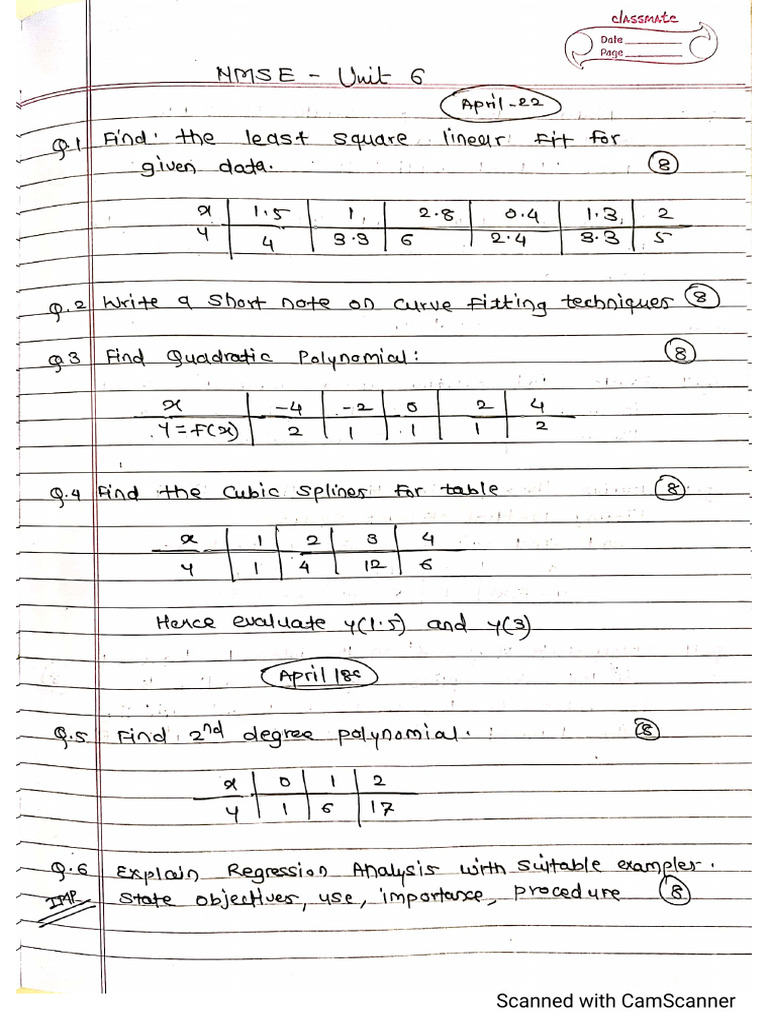 classmate
Date
Page
NMSE - Unit 6
April-22
Q.1 Find the least square linear fit for
given data. 8
x 1.5 1 2.8 0.4 1.3 2
y 4 3.3 6 2.4 3.3 5
Q.2 Write a short note on curve fitting techniques 8
Q3 Find Quadratic Polynomial: 8
x -4 -2 0 2 4
y=f(x) 2 1 1 1 2
Q.4 Find the Cubic Splines for table 8
x 1 2 3 4
y 1 4 12 6
Hence evaluate y(1.5) and y(3)
Q.5 Find 2nd degree polynomial. : 8
x 0 1 2
y 1 6 17
Q.6 Explain Regression Analysis with suitable examples.
IMP State objectives, use, importance, procedure 8
Scanned with CamScanner